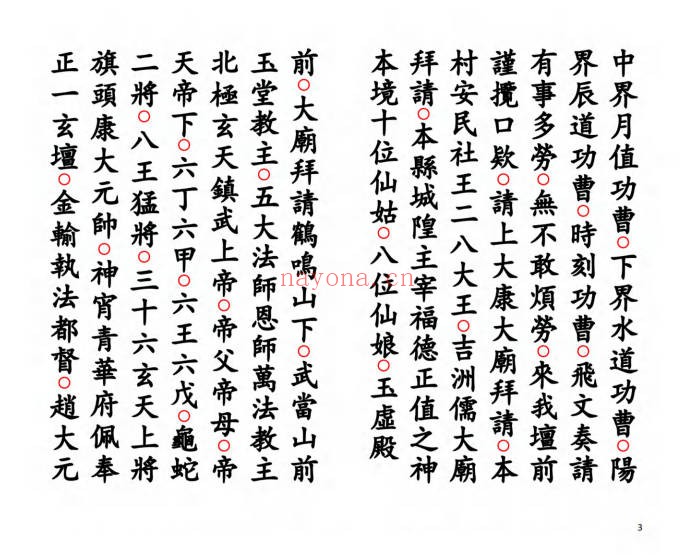 中界月值功曹○下界水道功曹○陽
界辰道功曹○時刻功曹○飛文奏請
有事多勞○無不敢煩勞○來我壇前
謹攬口欵○請上大康大廟拜請○本
村安民社王二八大王○吉洲儒大廟
拜請○本縣城隍主宰福德正值之神
本境十位仙姑○八位仙娘○玉虛殿
前○大廟拜請鶴鳴山下○武當山前
玉堂教主○五大法師恩師萬法教主
北極玄天鎮武上帝○帝父帝母○帝
天帝下○六丁六甲○六王六戊○龜蛇
二將○八王猛將○三十六玄天上將
旗頭康大元帥○神宵青華府佩奉
正一玄壇○金輪執法都督○趙大元
nayona.cn
3